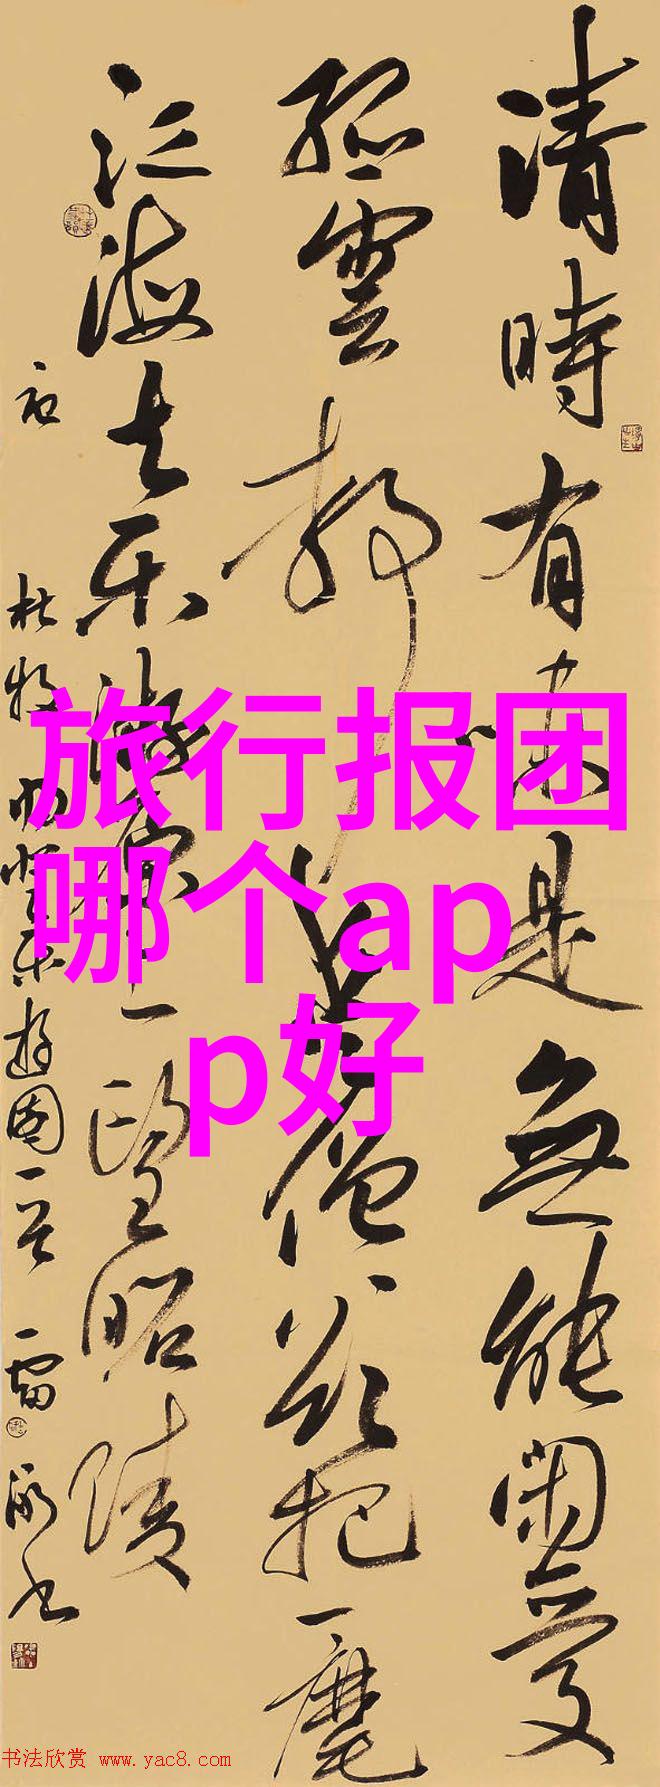 清時有味是無能閑愛
孤雲静愛僧欲把一麾
江海去乐游原上望昭陵
杜牧 登乐游園一首
旅行报团
哪个ap
p好
书法欣赏 www.yac8.com